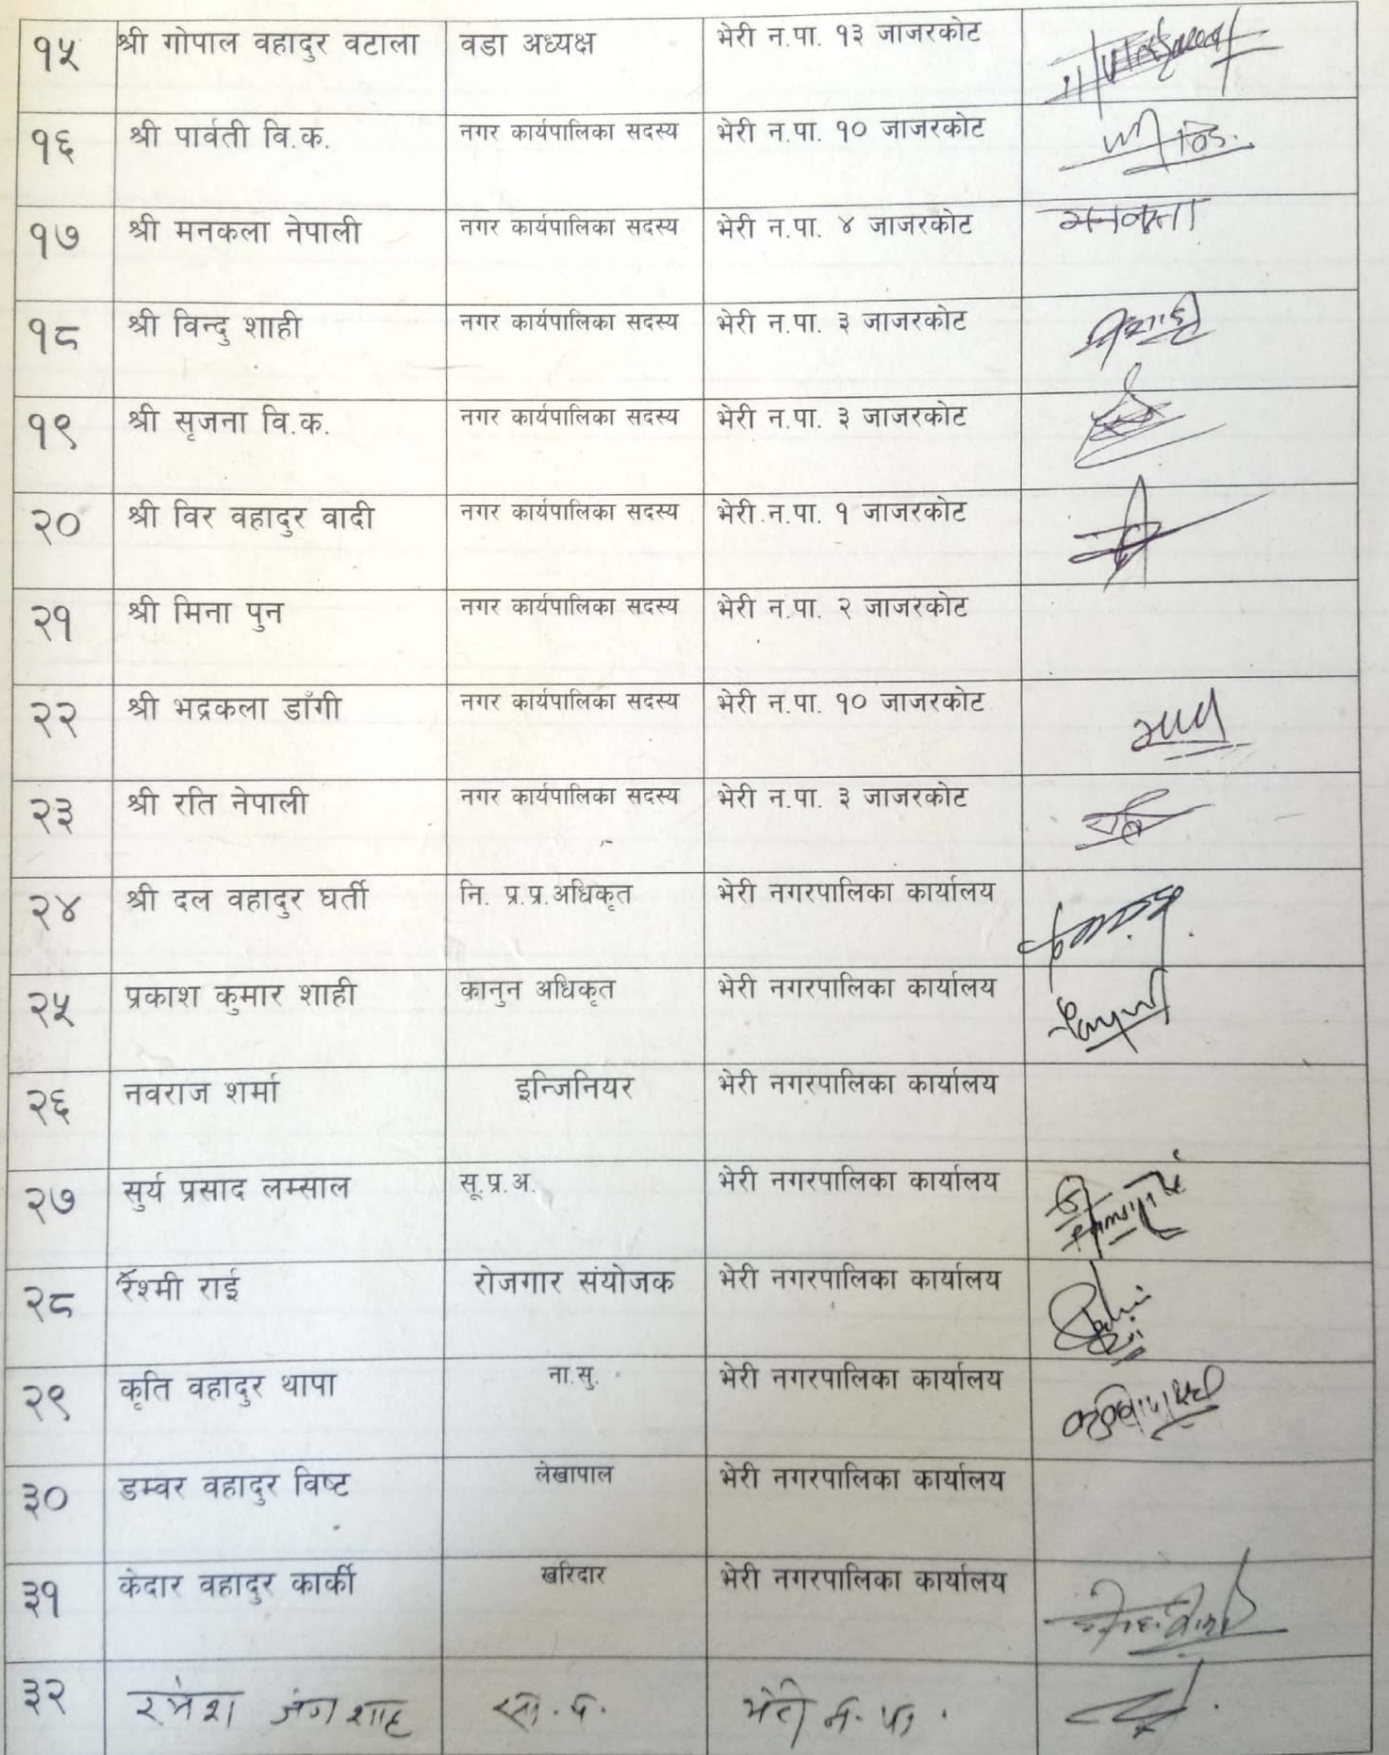 १५ श्री गोपाल वहादुर वटाला वडा अध्यक्ष भेरी न.पा. १३ जाजरकोट
१६ श्री पार्वती वि.क. नगर कार्यपालिका सदस्य भेरी न.पा. १० जाजरकोट
१७ श्री मनकला नेपाली नगर कार्यपालिका सदस्य भेरी न.पा. ४ जाजरकोट मनकला
१८ श्री विन्दु शाही नगर कार्यपालिका सदस्य भेरी न.पा. ३ जाजरकोट
१९ श्री सृजना वि.क. नगर कार्यपालिका सदस्य भेरी न.पा. ३ जाजरकोट
२० श्री विर वहादुर वादी नगर कार्यपालिका सदस्य भेरी न.पा. १ जाजरकोट
२१ श्री मिना पुन नगर कार्यपालिका सदस्य भेरी न.पा. २ जाजरकोट
२२ श्री भद्रकला डाँगी नगर कार्यपालिका सदस्य भेरी न.पा. १० जाजरकोट
२३ श्री रति नेपाली नगर कार्यपालिका सदस्य भेरी न.पा. ३ जाजरकोट
२४ श्री दल वहादुर घर्ती नि. प्र.प्र.अधिकृत भेरी नगरपालिका कार्यालय
२५ प्रकाश कुमार शाही कानुन अधिकृत भेरी नगरपालिका कार्यालय
२६ नवराज शर्मा इन्जिनियर भेरी नगरपालिका कार्यालय
२७ सुर्य प्रसाद लम्साल सू.प्र.अ. भेरी नगरपालिका कार्यालय
२८ रश्मी राई रोजगार संयोजक भेरी नगरपालिका कार्यालय
२९ कृति वहादुर थापा ना.सु. भेरी नगरपालिका कार्यालय
३० डम्वर वहादुर विष्ट लेखापाल भेरी नगरपालिका कार्यालय
३१ केदार वहादुर कार्की खरिदार भेरी नगरपालिका कार्यालय
३२ रमेश जंग शाह भेरी न.पा.